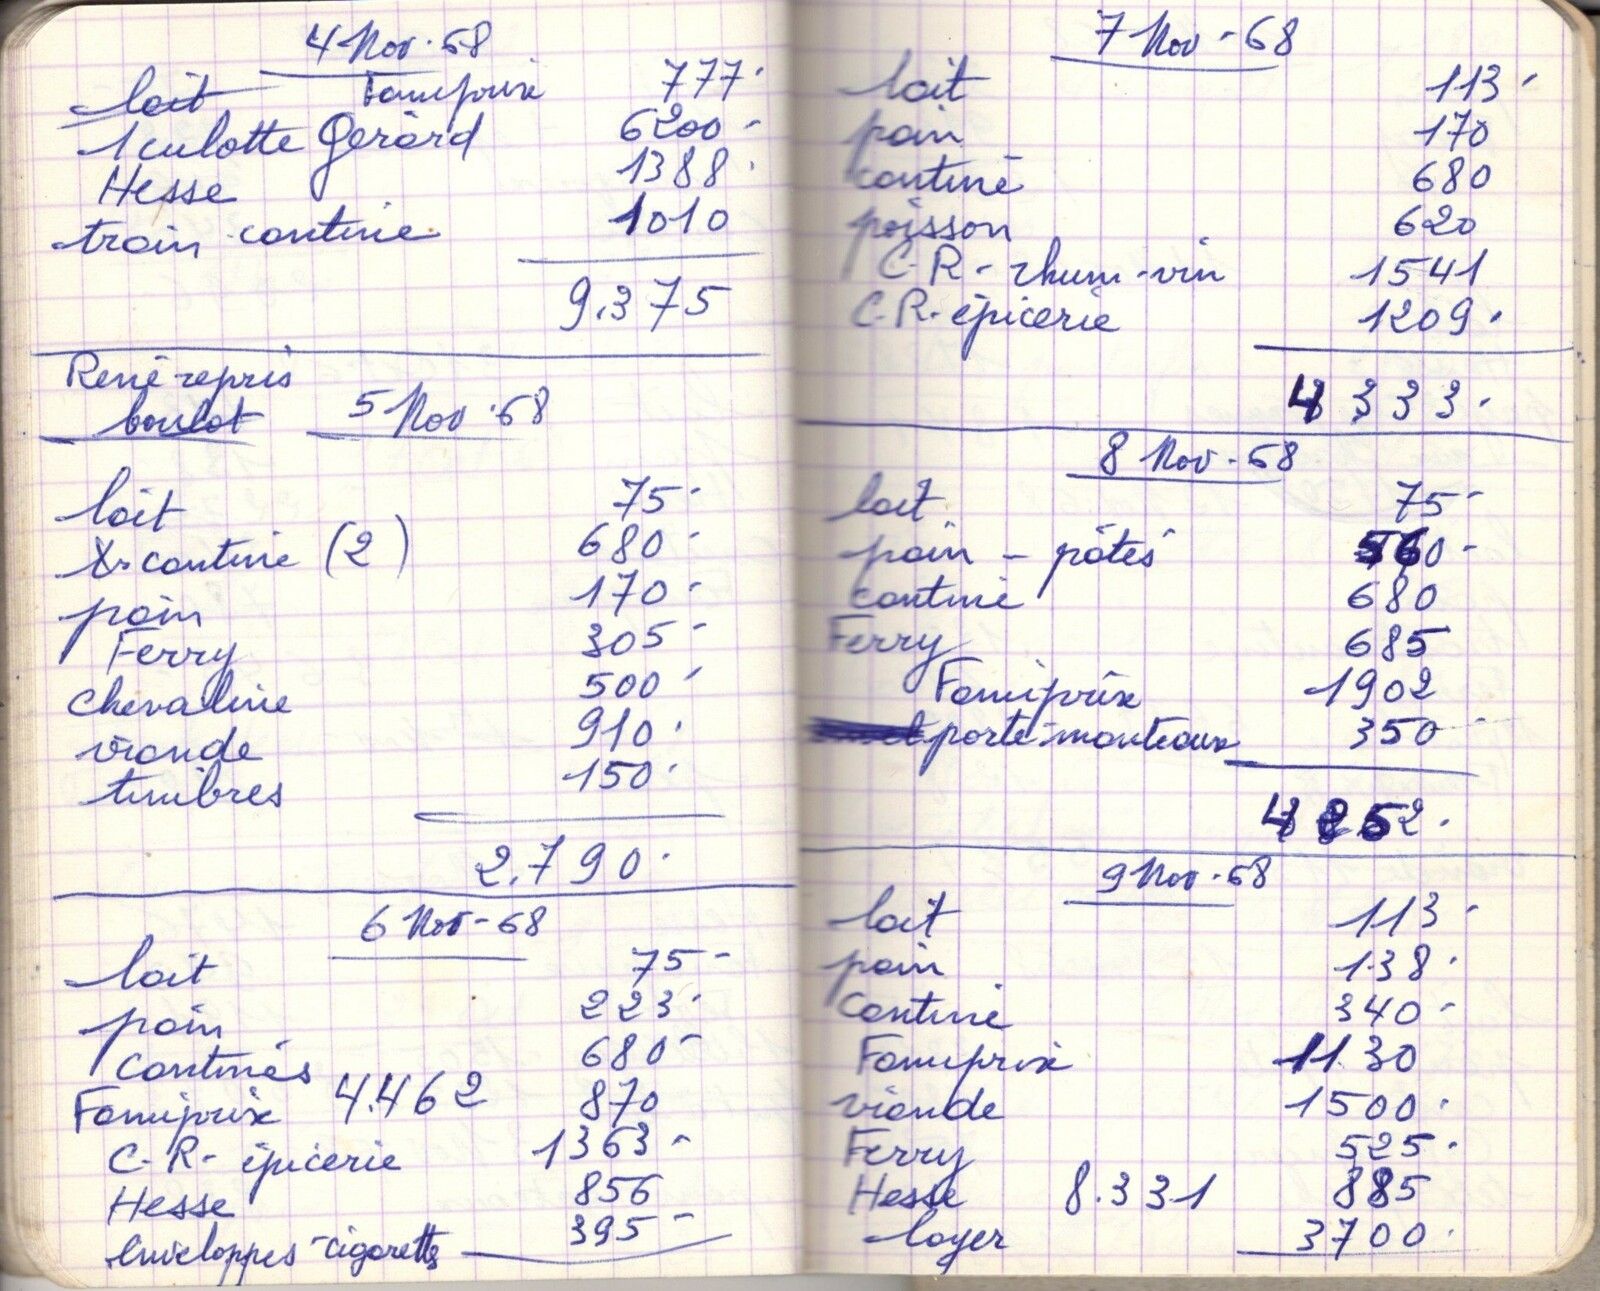 4 Nov. 68
lait Famiprix 777.
1 culotte Gérard 6200 -
Hesse 1388.
train cantine 1010
9.375
René repris
boulot 5 Nov. 68
lait 75 -
cantine (2) 680 -
pain 170 -
Ferry 305 -
chevaline 500 -
viande 910.
timbres 150.
2.790.
6 Nov - 68
lait 75 -
pain 223.
Cantines 680 -
Famiprix 4.462 870
C. R. épicerie 1363 -
Hesse 856
enveloppes - cigarettes 395 -
7 Nov - 68
lait 113.
pain 170
cantine 680
poisson 620
C. R - rhum - vin 1541
C. R. épicerie 1209.
4333.
8 Nov - 68
lait 75 -
pain - pâtés 560 -
cantine 680
Ferry 685
Famiprix 1902
porte-manteaux 350
4252.
9 Nov. 68
lait 113 -
pain 138.
Cantine 340 -
Famiprix 1130
viande 1500.
Ferry 525.
Hesse 8.331 885
loyer 3700.